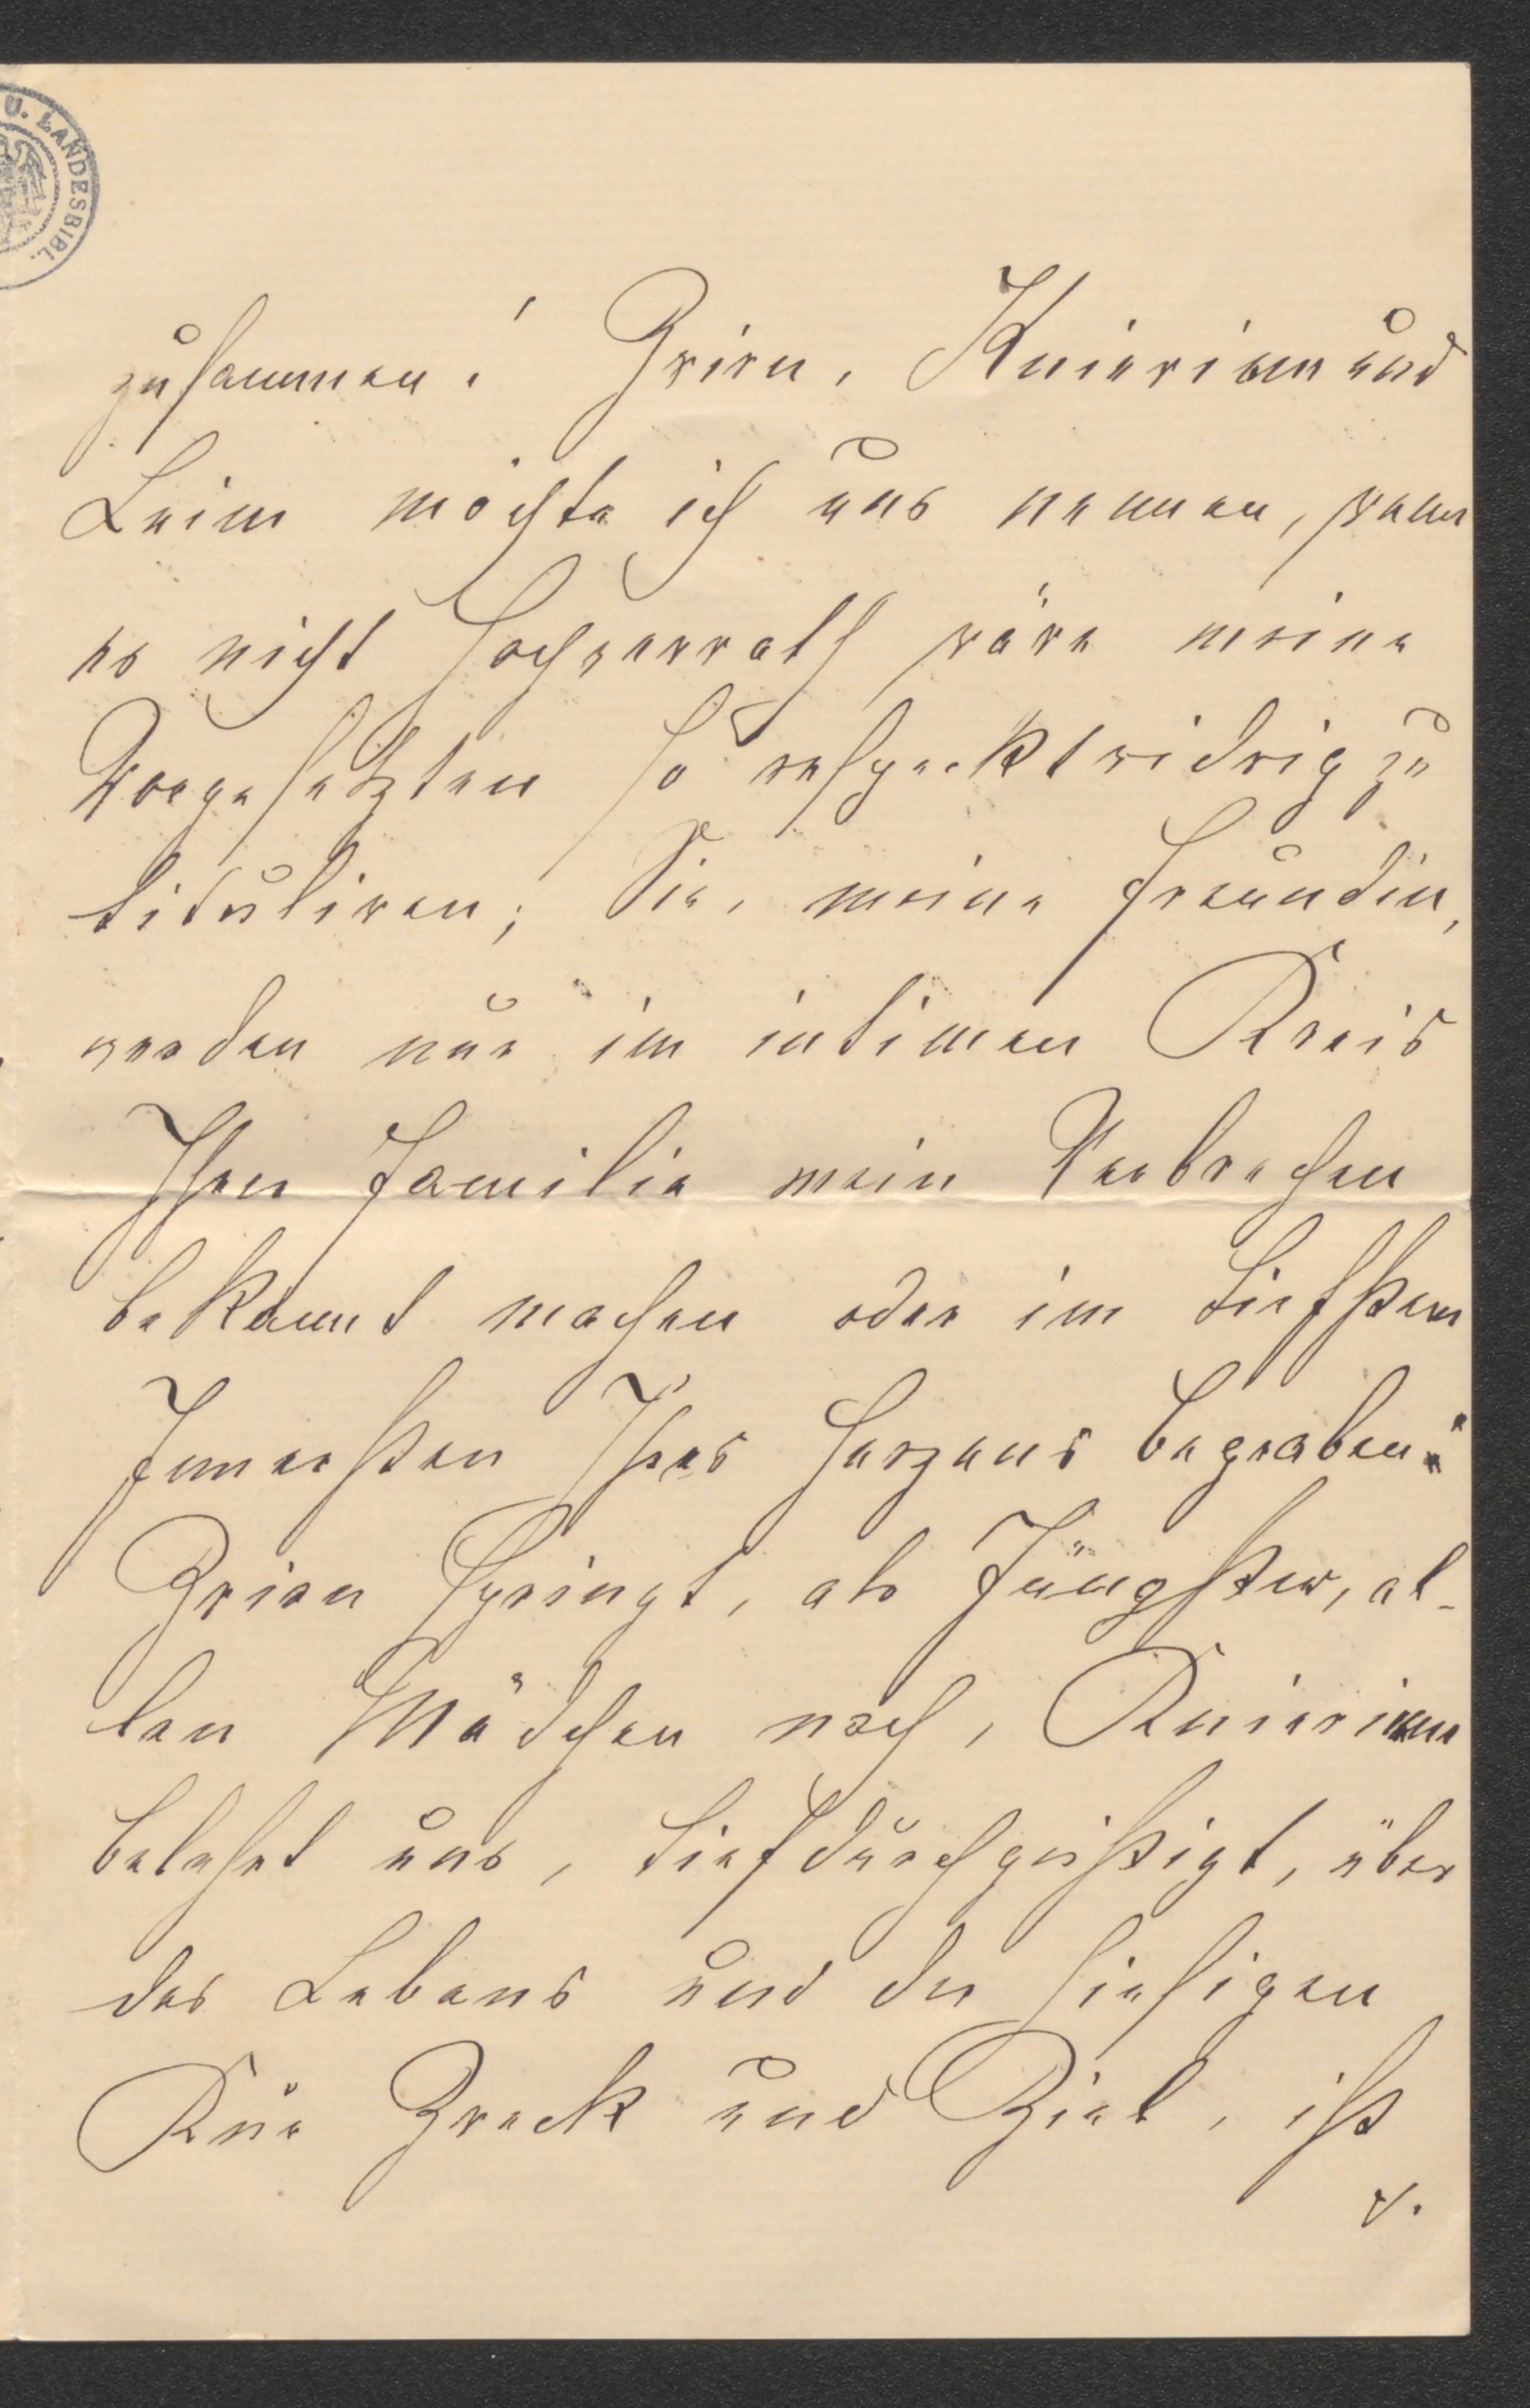 U. LANDESBIBL.
zusammen! Zwirn, Knieriem und
Leim möchte ich uns nennen, wenn
es nicht Hochverrath wäre meine
Vorgesetzten so respecktwidrig zu
tituliren; Sie, meine Freundin,
werden nur im intimen Kreis
Ihrer Familie mein Verbrechen
bekannt machen oder im tiefsten
Innersten Ihres Herzens begraben.
Zwirn springt, als Jüngster, al-
len Mädchen nach, Knieriem
belehrt uns, tiefdurchgeistigt, über
des Lebens und der hiesigen
Kur Zweck und Ziel, ist